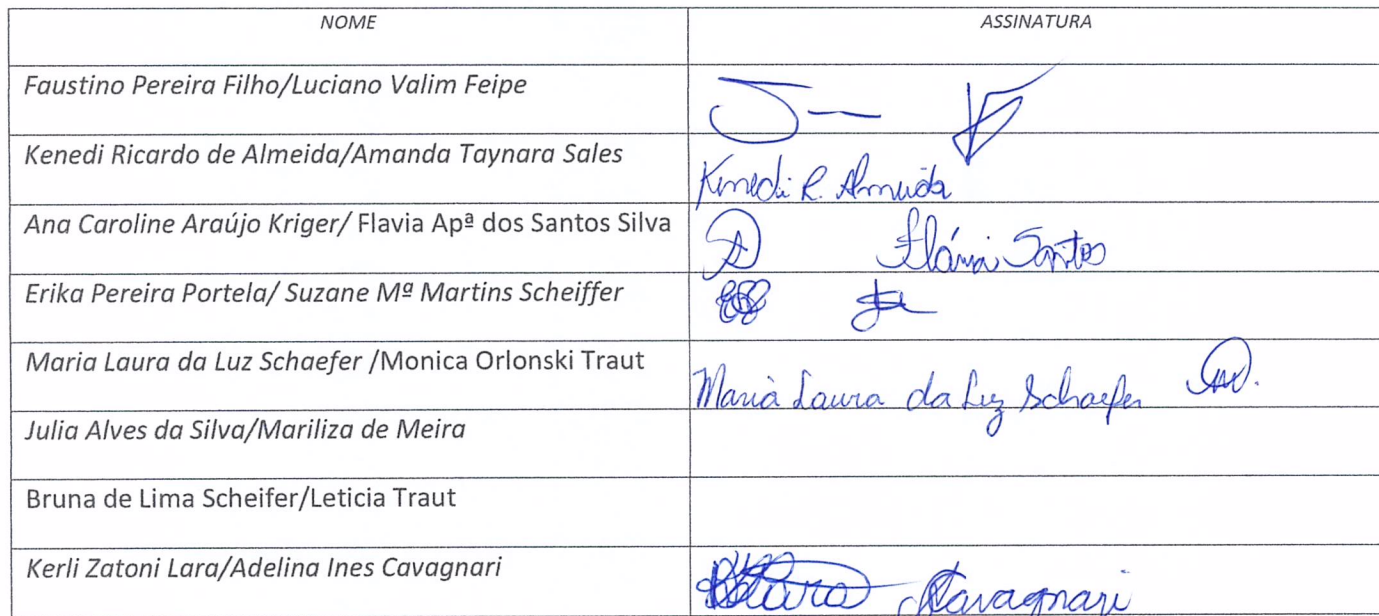 NOME ASSINATURA
Faustino Pereira Filho/Luciano Valim Feipe
Kenedi Ricardo de Almeida/Amanda Taynara Sales
Kenedi R. Almeida
Ana Caroline Araújo Kriger/ Flavia Apª dos Santos Silva
Flávia Santos
Erika Pereira Portela/ Suzane Mª Martins Scheiffer
Maria Laura da Luz Schaefer /Monica Orlonski Traut
Maria Laura da Luz Schaefer
Julia Alves da Silva/Mariliza de Meira
Bruna de Lima Scheifer/Leticia Traut
Kerli Zatoni Lara/Adelina Ines Cavagnari
Cavagnari